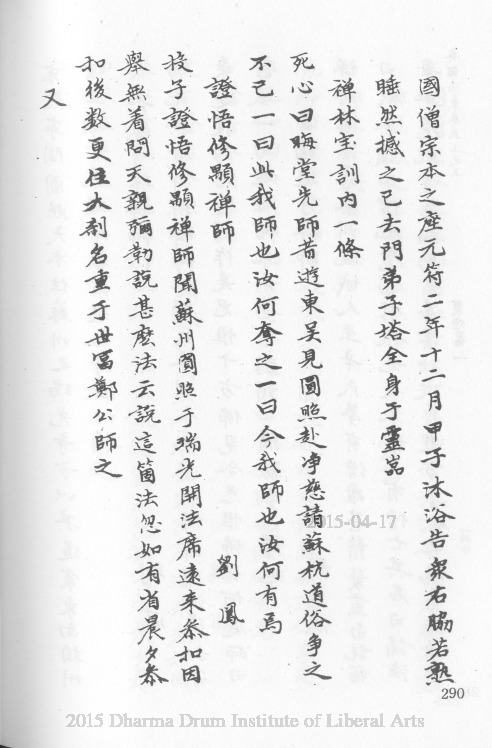 國僧宗本之座元符二年十二月甲子沐浴告衆右脇若熟
睡然撼之已去門弟子塔全身于靈嵓
禅林宝訓内一條
死心曰晦堂先師昔遊東吴見圓照赴净慈請蘇杭道俗争之
不已一曰此我師也汝何奪之一曰今我師也汝何有焉
證悟修顒禅師
劉鳳
投子證悟修顒禅師聞蘇州圓照于瑞光開法席遠来叅扣因
舉無着問天親弥勒説甚麽法云説這箇法忽如有省晨夕叅
扣後数更住大刹名重于世冨鄭公師之
又
290
2015-04-17
2015 Dharma Drum Institute of Liberal Arts